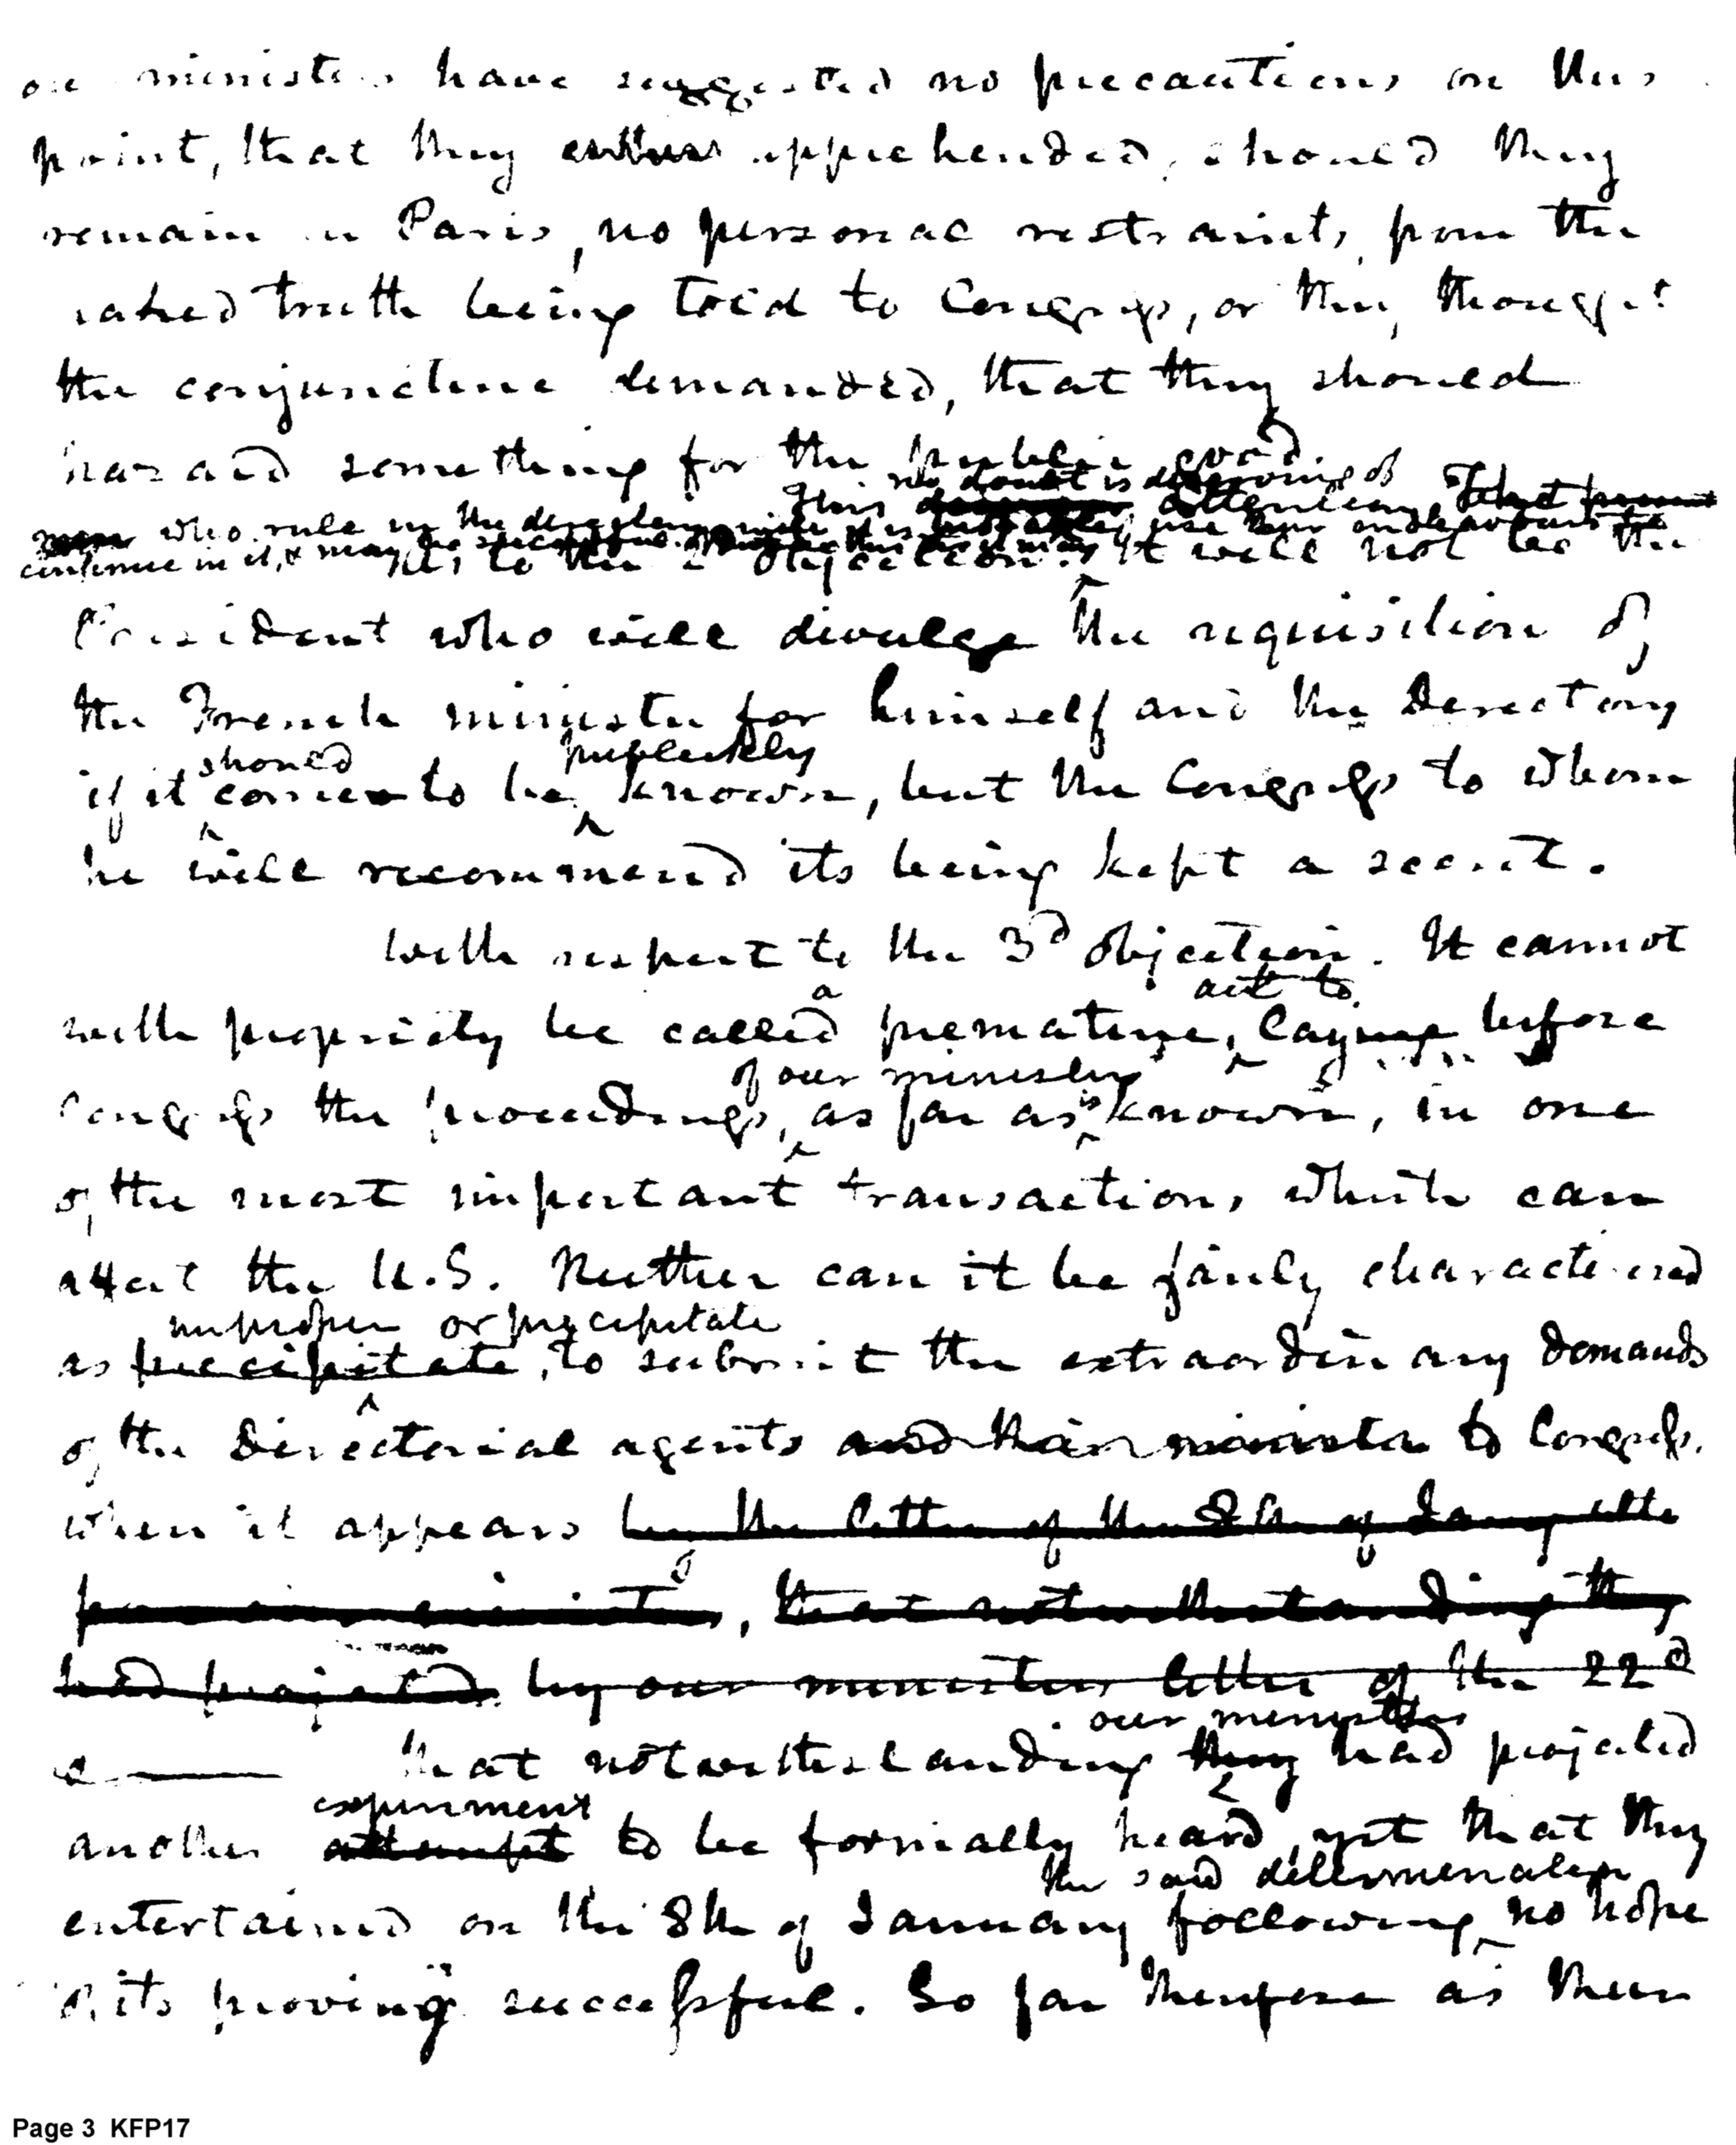 our ministers have suggested no precautions on this
point, that they either apprehended, should they
remain in Paris, no personal restraints, from the
naked truth being told to Congress, or they thought
the conjuncture demanded, that they should
hazard something for the public good.
no doubt is deserving of
This attention. That
who rule in the directory will use their endeavours to
continue in it, & may be successful
As to the 2d objection. It will not be the
President who will divulge the requisition of
the French minister for himself and the Directory
should publickly
if it comes to be known, but the Congress to whom
he will recommend its being kept a secret.
With respect to the 3d objection. It cannot
a act to
with propriety be called premature, laying before
of our ministers
Congress the proceedings, as far as is known, in one
of the most important transactions which can
affect the U.S. Neither can it be fairly characterised
improper or precipitate
as precipitate, to submit the extraordinary demands
of the Directorial agents and their minister to Congress.
when it appears by the letter of the 8th of Jany
from our ministers, that notwithstanding they
had projected by our ministers letter of the 22d
our ministers
that notwithstanding they had projected
experiment
another attempt to be formally heard, yet that they
the said determination
entertained on the 8th of January following no hope
of its proving successful. So far therefore as their
Page 3 KFP17